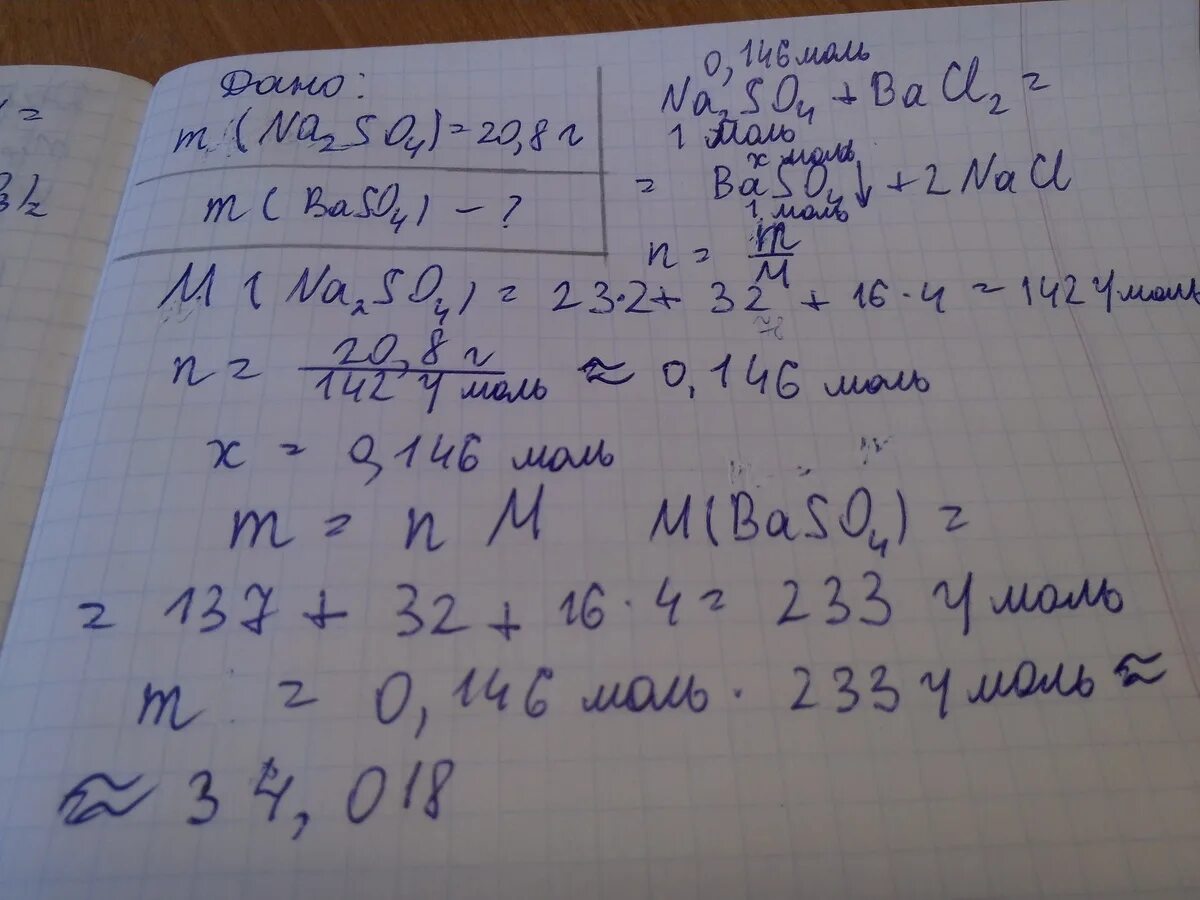 Дано:
m (Na₂SO₄) = 20,8 г
m ( BaSO₄) - ?
0,146 моль
Na₂SO₄ + BaCl₂ =
1 моль
x моль
= BaSO₄↓ + 2 NaCl
1 моль
n = m/M
M ( Na₂SO₄) = 23·2 + 32 + 16·4 = 142 г/моль
n = 20,8 г / 142 г/моль ≈ 0,146 моль
x = 0,146 моль
m = n M M(BaSO₄) =
= 137 + 32 + 16·4 = 233 г/моль
m = 0,146 моль · 233 г/моль ≈
≈ 34,018